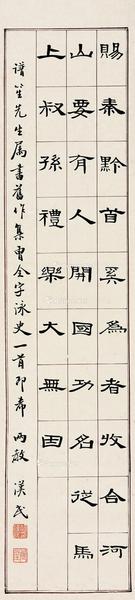 賜秦黔首奚為者收合河
山要有人開國功名從馬
上叔孫禮樂大無因
譜笙先生屬書舊作集曹全字詠史一首即希 兩教 漢民